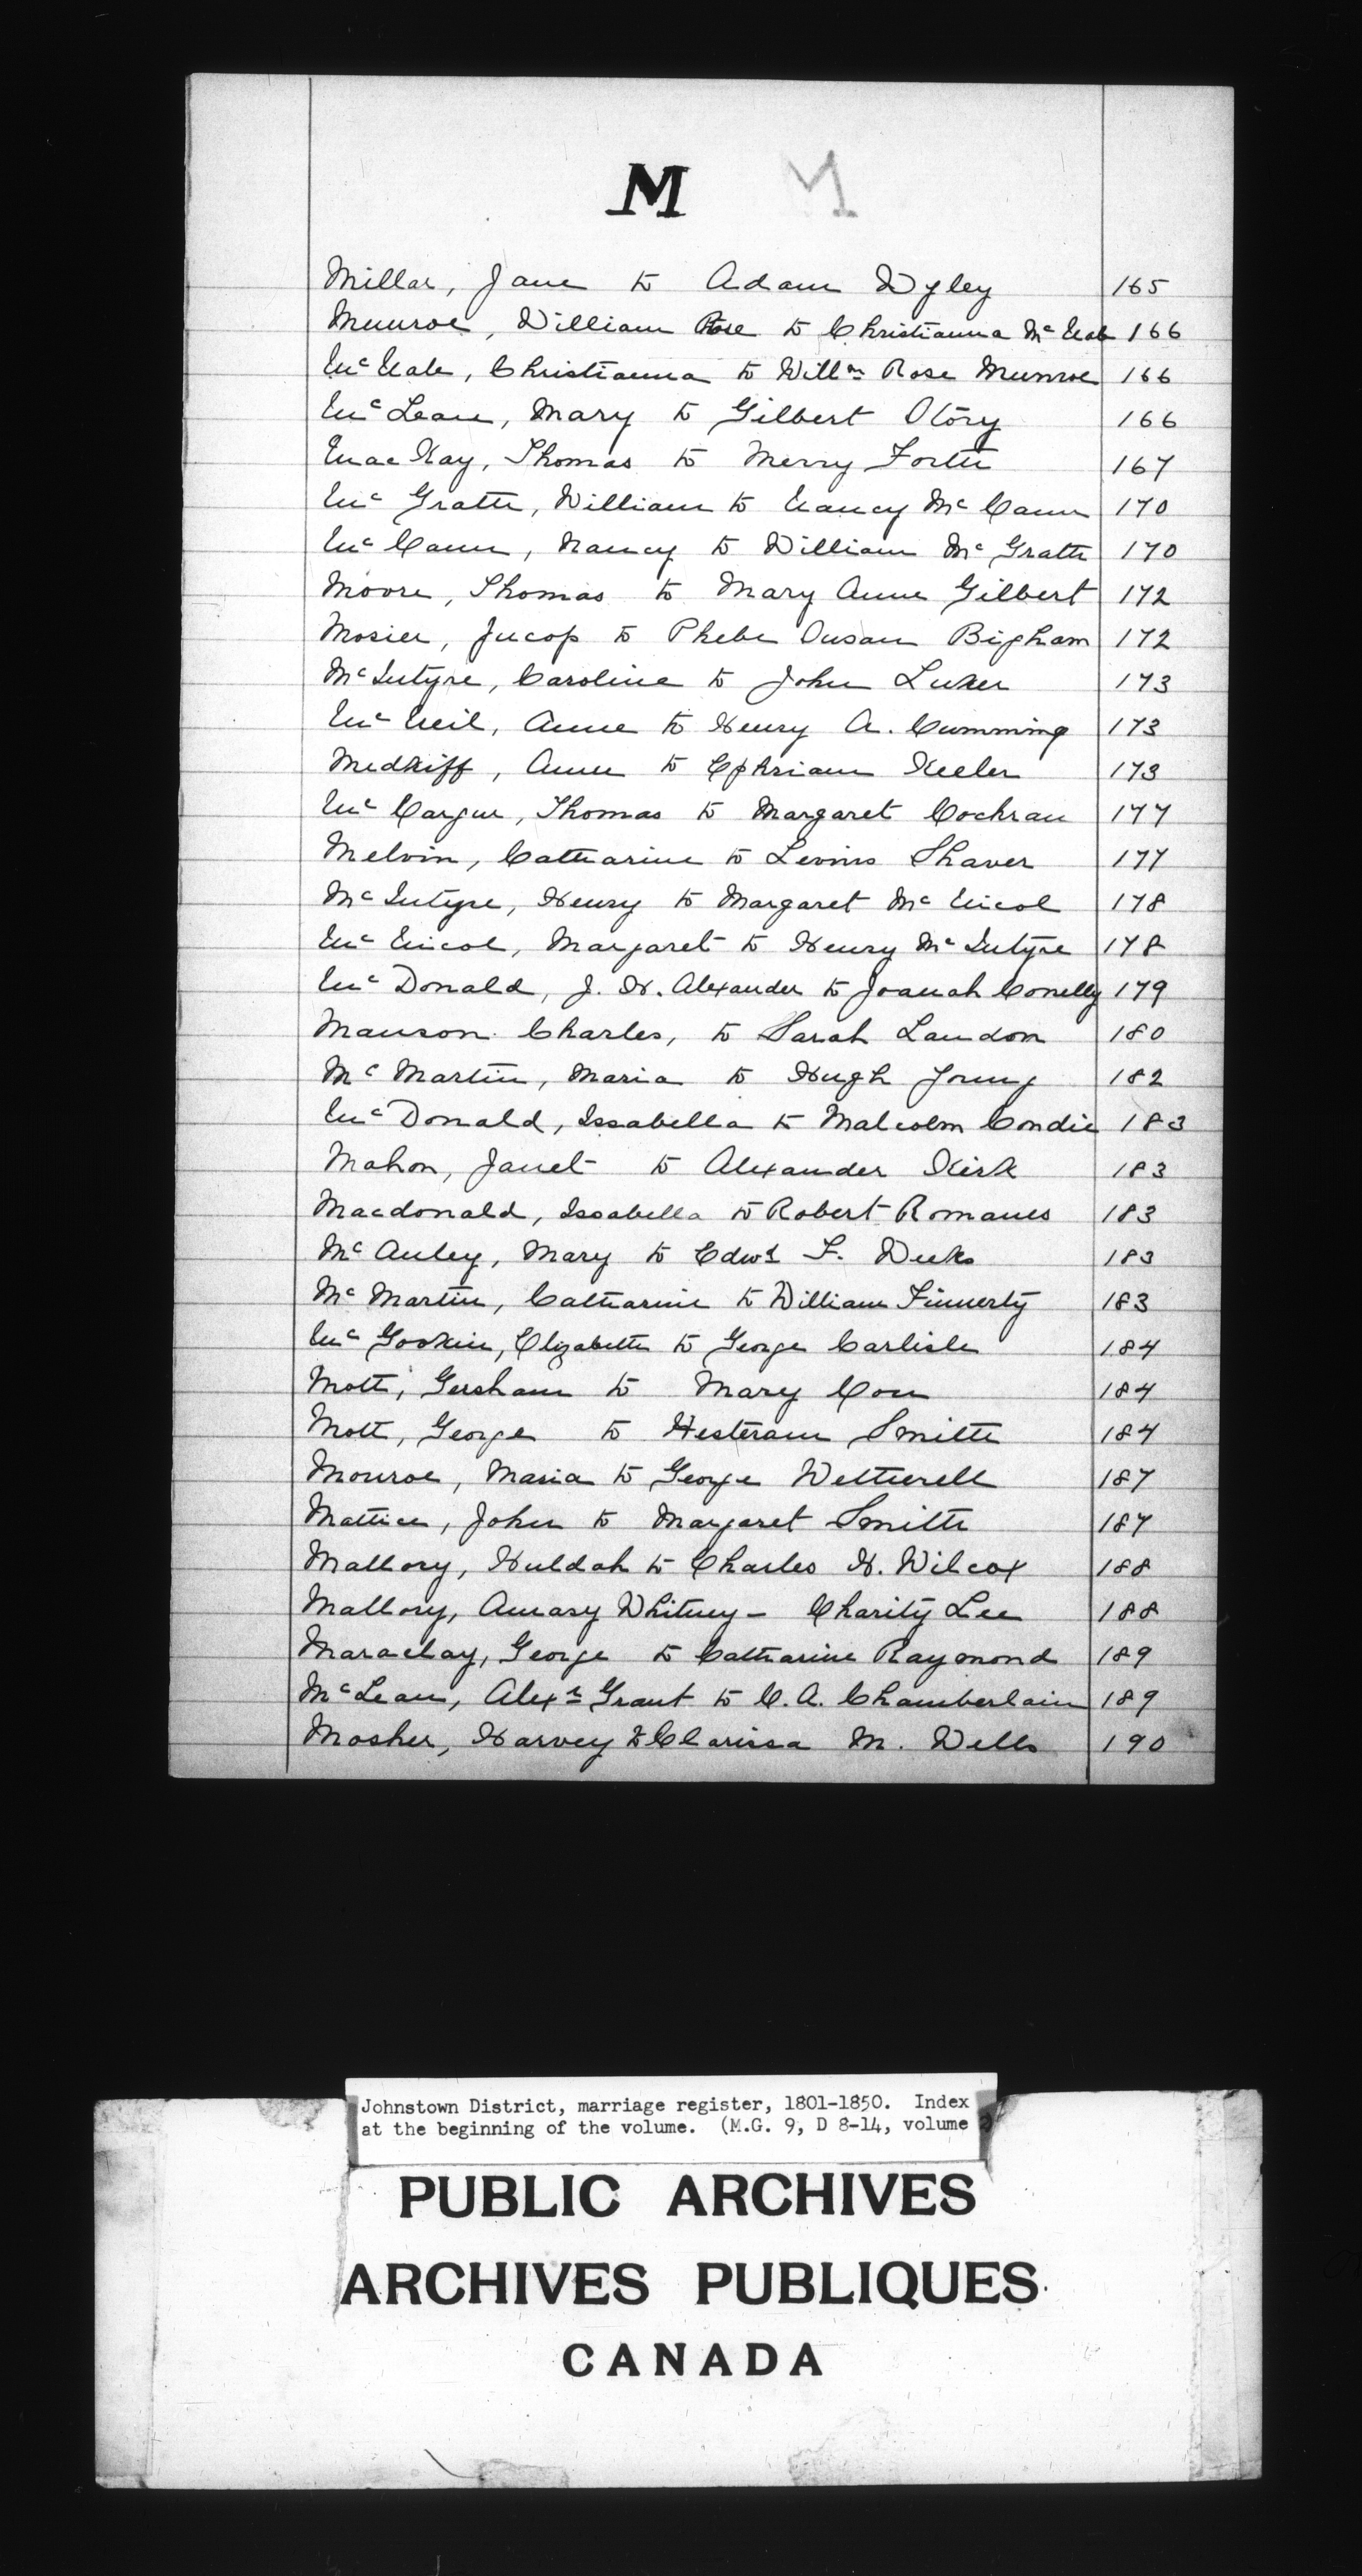 M M
Millar, Jane to Adam Wyley 165
Munroe, William Rose to Christianna Mc Nab 166
Mc Nab, Christianna to Willm Rose Munroe 166
Mc Lean, Mary to Gilbert Story 166
Mac Kay, Thomas to Merry Forth 167
Mc Grath, William to Nancy Mc Cann 170
Mc Cann, Nancy to William Mc Grath 170
Moore, Thomas to Mary Anne Gilbert 172
Mosier, Jucop to Phebe Susan Bigham 172
McIntyre, Caroline to John Luker 173
Mc Neil, Anne to Henry A. Cumming 173
Medkiff, Ann to Ephriam Keeler 173
Mc Cargur, Thomas to Margaret Cochran 177
Melvin, Catharine to Shaver 177
Mc Intyre, Henry to Margaret Mc Nicol 178
Mc Nicol, Margaret to Henry Mc Intyre 178
Mc Donald, J. H. Alexander to Joanah Conelly 179
Manson Charles, to Sarah Landon 180
Mc Martin, Maria to Hugh Young 182
Mc Donald, Issabella to Malcolm Condie 183
Mahon, Janet to Alexander Kirk 183
Macdonald, Issabella to Robert Romanes 183
Mc Auley, Mary to Edwd F. Weeks 183
Mc Martin, Catharine to William Finnerty 183
Mc Gookin, Elizabeth to George Carlisle 184
Mott, Gersham to Mary Con 184
Mott, George to Hesteram Smith 184
Monroe, Maria to George Wetherell 187
Mattice, John to Margaret Smith 187
Mallory, Huldah to Charles H. Wilcox 188
Mallory, Amasy Whitney - Charity Lee 188
Maraclay, George to Catharine Raymond 189
McLean, Alexr Grant to C. A. Chamberlain 189
Mosher, Harvey to Clarissa M. Wells 190
Johnstown District, marriage register, 1801-1850. Index
at the beginning of the volume. (M.G. 9, D 8-14, volume
PUBLIC ARCHIVES
ARCHIVES PUBLIQUES
CANADA